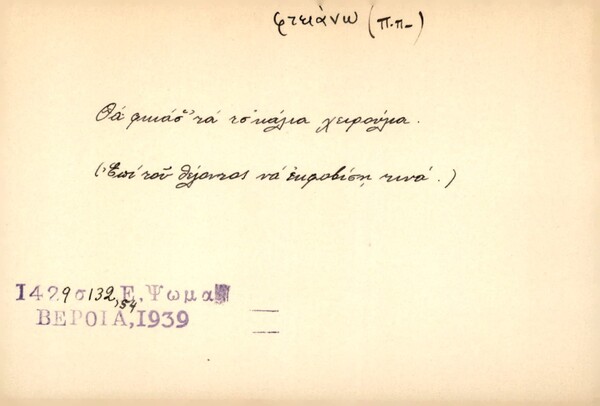 φτειάνω (π.π-)
Θά φκιάσ' τά τσ'κάλια χειρούλια.
(Ἐπί τοῦ θέλοντος νά ἐκφοβίσῃ τινά.)
1429σ132,54 Ε. Ψωμα
ΒΕΡΟΙΑ, 1939